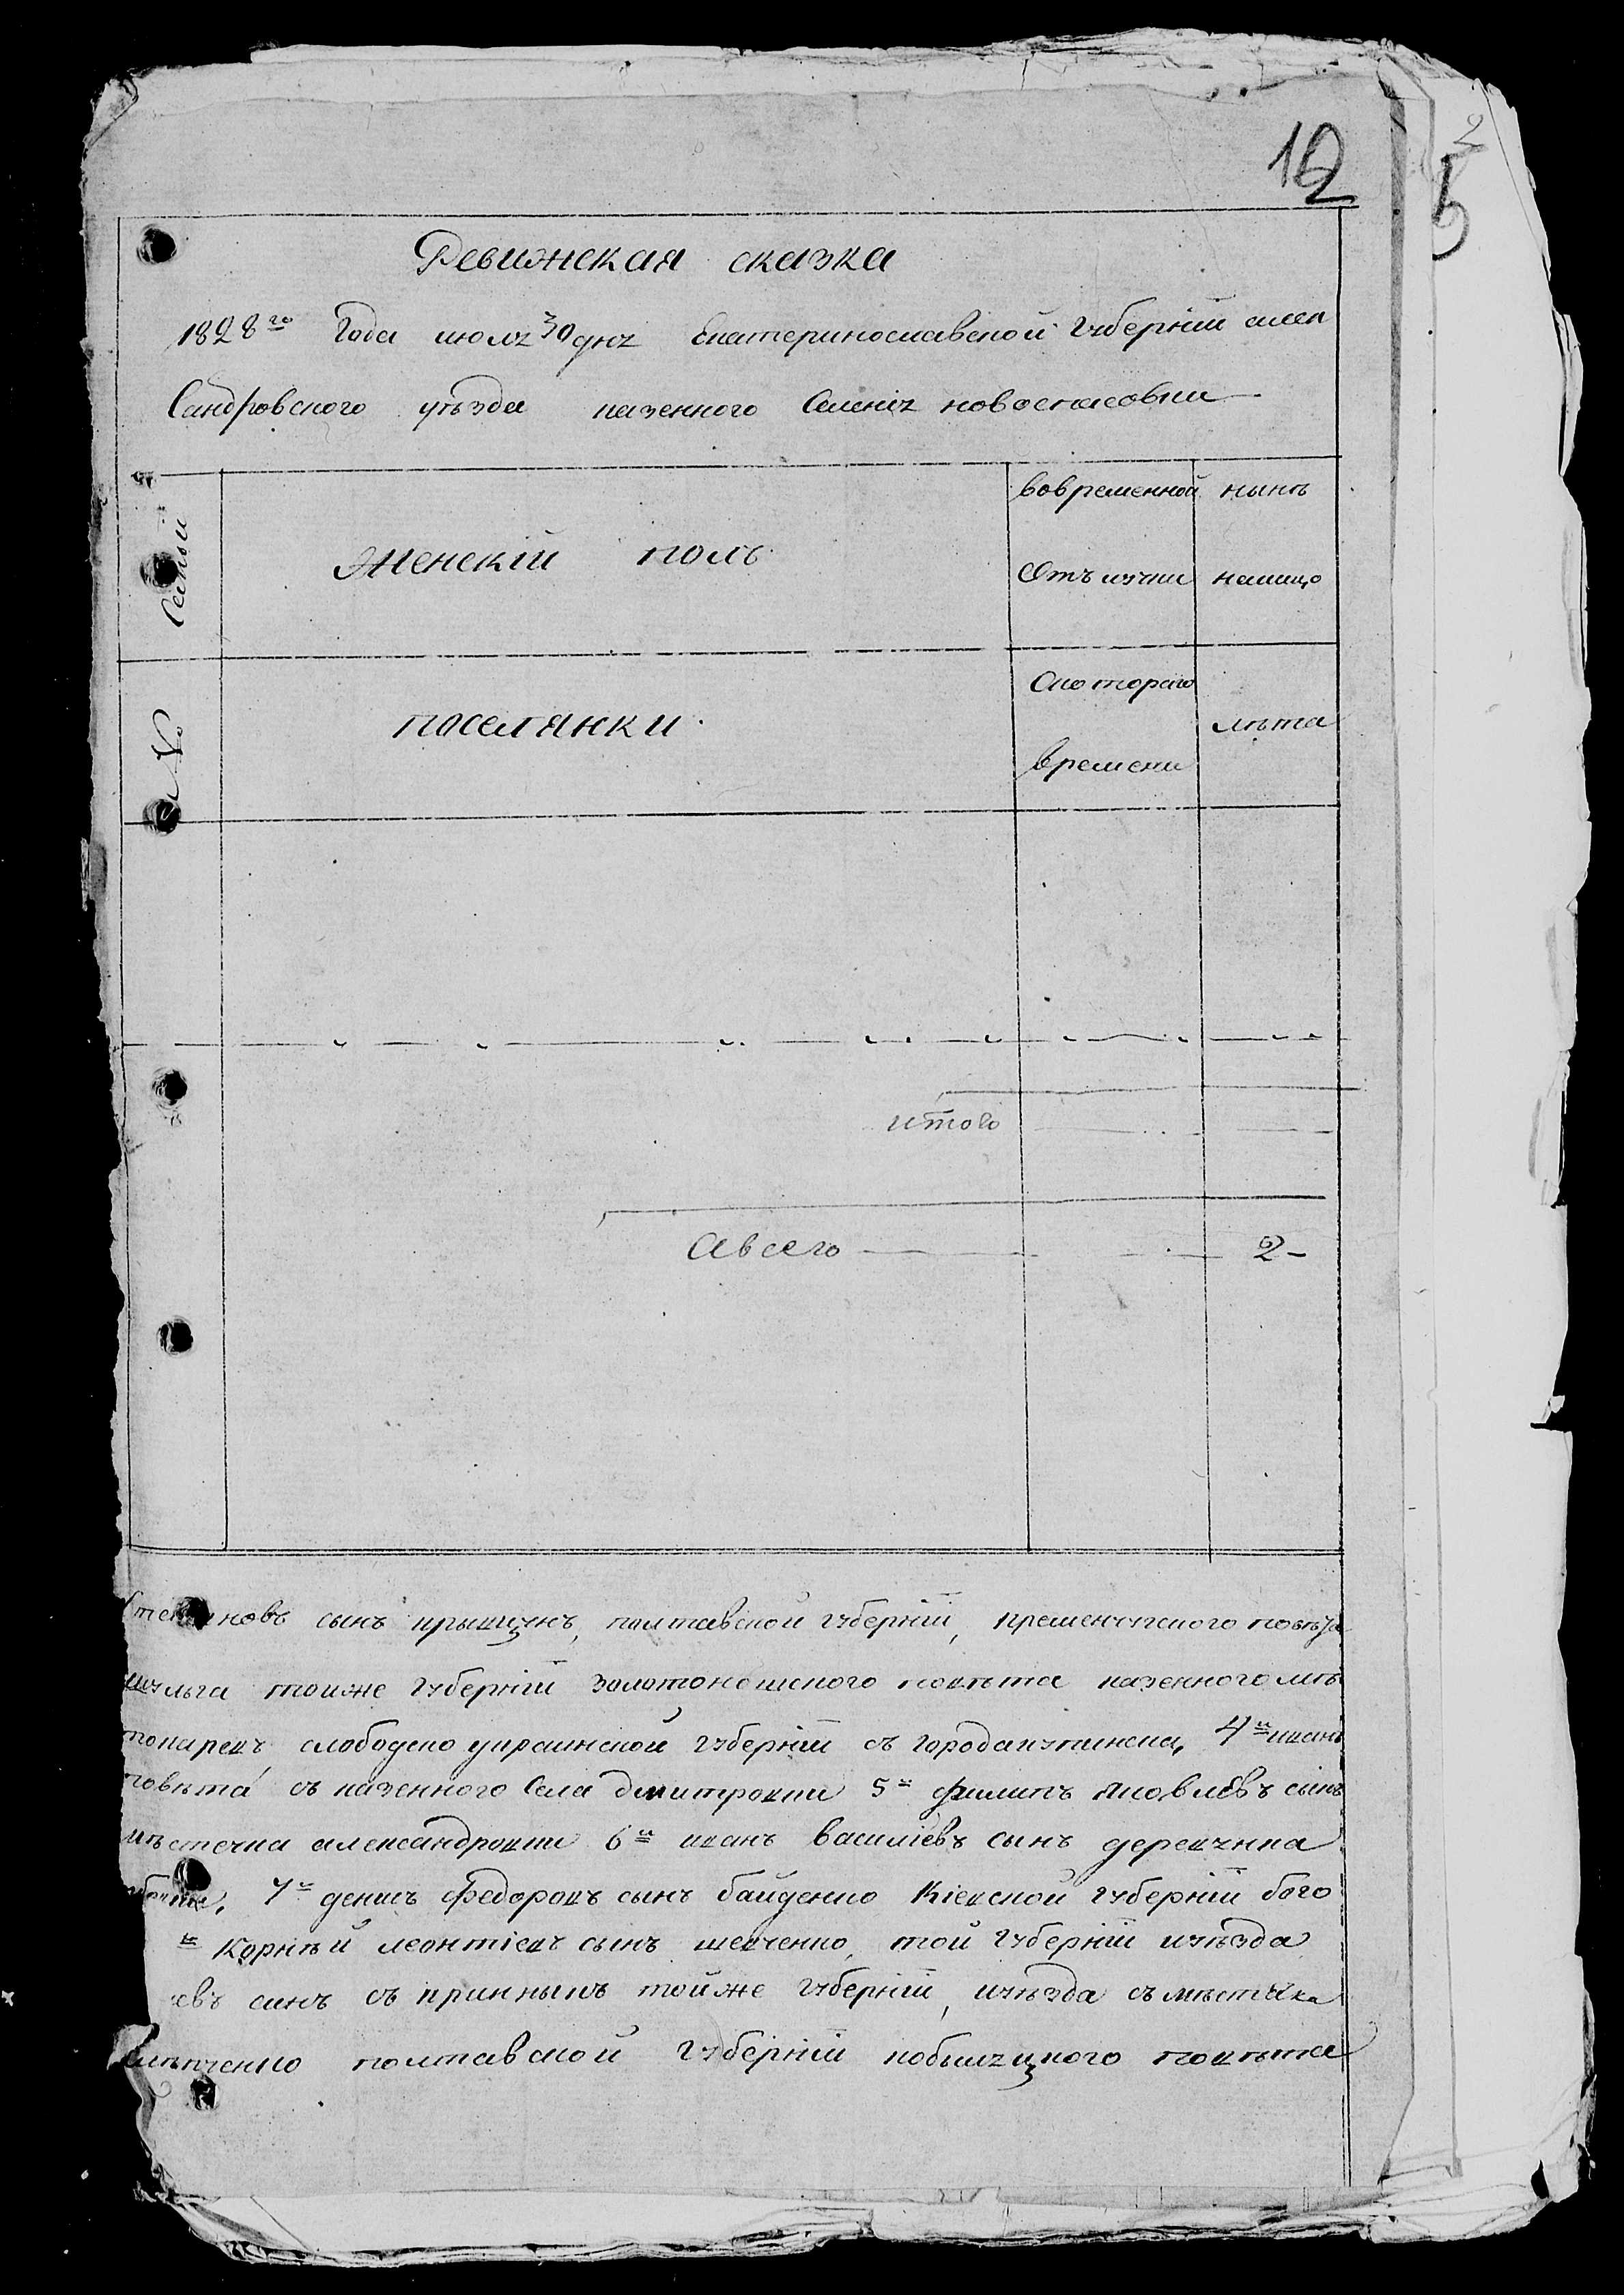 12
2
5
Ревижская сказка
1828го Года июля 30 дня Екатеринославской Губернiи алек
Сандровского уѣзда казенного Селенiя новоспасовки
Семьи
Женскiй полъ
вовременной
Отълучки
нынѣ
налицо
№
поселянки
Скоторого
времени
лѣта
итого
Авсего 2
новъ сынъ крыцинъ, полтавской губернiи, кременчугского повѣта
тойже Губернiи Золотоношского повѣта казенного мѣ
слободско украинской губернiи съ города 4й иванъ
повѣта съ казенного Села дмитровки 5й филипъ яковлевъ сынъ
мѣстечка александровки 6й иванъ василiевъ сынъ деревянка
7й денисъ Федоровъ сынъ байденко Кiевской губернiи бого
й Корнѣй леонтiевъ сынъ шевченко, той Губернiи иуѣзда
евъ синъ тойже Губернiи, иуѣзда съ мѣстечка
полтавской Губернiи кобыляцкого повѣта